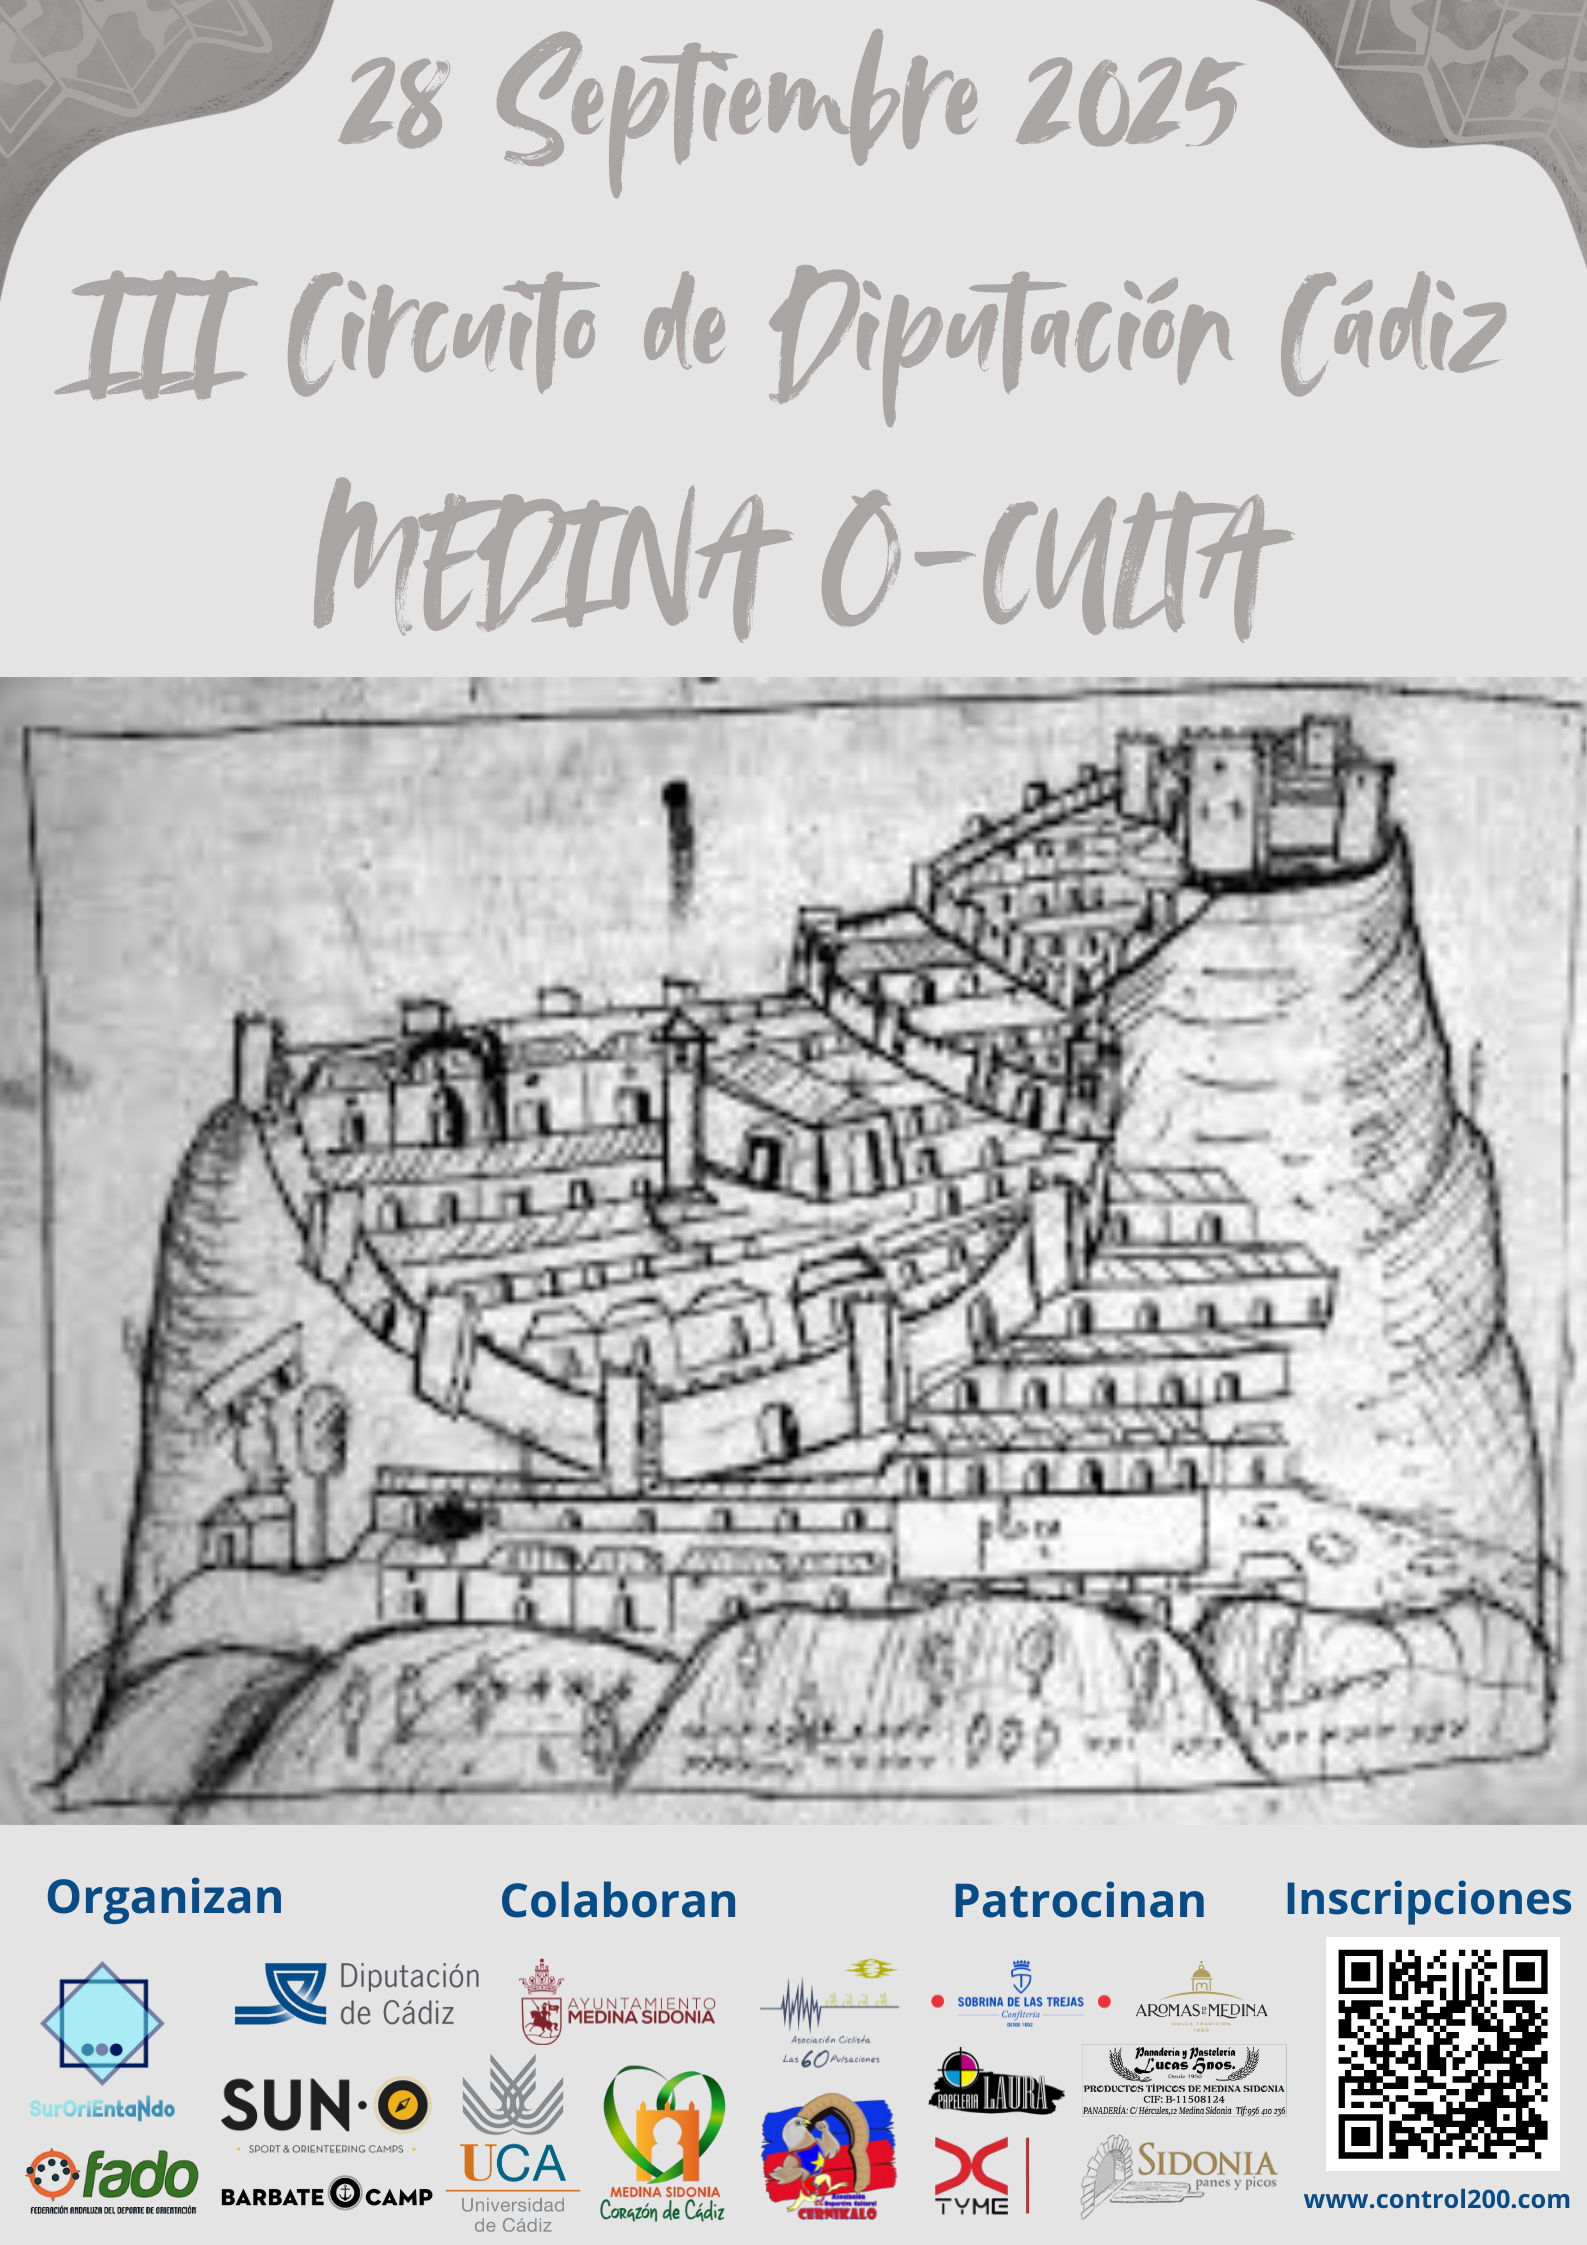 28 Septiembre 2025
III Circuito de Diputación Cádiz
MEDINA O-CULTA
plaça
Organizan
Colaboran
Patrocinan
Inscripciones
SurOriEntaNdo
Diputación
de Cádiz
SUN·O
SPORT & ORIENTEERING CAMPS
fado
FEDERACIÓN ANDALUZA DEL DEPORTE DE ORIENTACIÓN
BARBATE CAMP
AYUNTAMIENTO
MEDINA SIDONIA
UCA
Universidad
de Cádiz
MEDINA SIDONIA
Corazón de Cádiz
Asociación Ciclista
Las 60 Pulsaciones
Asociación
Deportivo Cultural
CERNIKALO
SOBRINA DE LAS TREJAS
Confitería
DESDE 1852
AROMAS DE MEDINA
DULCE TRADICIÓN
PAPELERIA LAURA
Panadería y Pastelería
Lucas Hnos.
Desde 1950
PRODUCTOS TÍPICOS DE MEDINA SIDONIA
CIF: B-11508124
PANADERÍA: C/ Hércules,12 Medina Sidonia Tlf:956 410 236
TYME
SIDONIA
panes y picos
www.control200.com